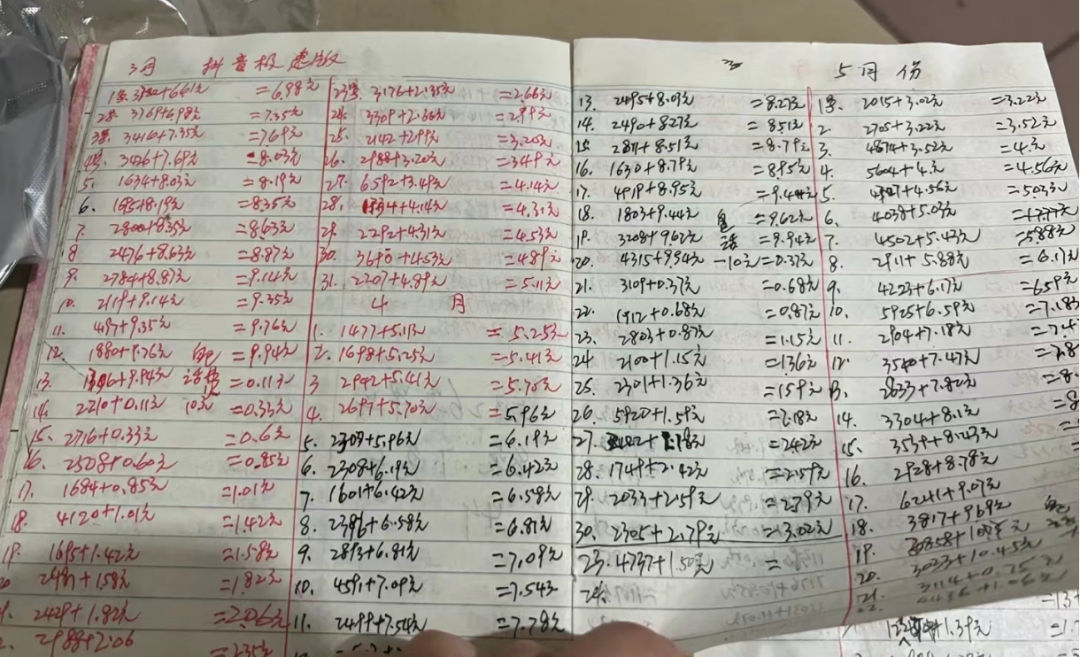 3月 抖音极速版
=6.98元
28. 3769+6.98元 =7.35元
3号 3416+7.35元 =7.69元
3426+7.69元 =8.03元
5. 1634+8.03元 =8.19元
6. +8.19元 =8.35元
7. 2800+8.35元 =8.63元
8 2476+8.63元 =8.87元
9. 2784+8.87元 =9.14元
10. 2119+9.14元 =9.35元
11. +9.35元 =9.76元
12. 1880+9.76元 =9.94元
13. +9.94元 话费 =0.11元
14. 2210+0.11元 10元 =0.33元
15. 2716+0.33元 =0.6元
16. 2508+0.60元 =0.85元
17. 1684+0.85元 =1.01元
18. 4120+1.01元 =1.42元
19. 1695+1.42元 =1.58元
+1.58元 =1.82元
2429+1.82元 =2.06元
2988+2.06 =2.35元
=2.66元
+2.66元 =2.99元
25. 2142+2.99元 =3.20元
26. 2988+3.20元 =3.49元
27. 6592+3.49元 =4.14元
28. +4.14元 =4.31元
29. 2292+4.31元 =4.53元
30. +4.53元 =4.89元
31. 2207+4.89元 =5.11元
4 月
1. 1477+5.11元 =5.25元
2. 1698+5.25元 =5.41元
3 2942+5.41元 =5.70元
4. 2697+5.70元 =5.96元
5. 2309+5.96元 =6.19元
6. 2308+6.19元 =6.42元
7. 1601+6.42元 =6.58元
8. 2396+6.58元 =6.81元
9. 2893+6.81元 =7.09元
10. 4591+7.09元 =7.54元
11. 2499+7.54元 =7.78元
13. 2495+8.03元 =8.27元
14. 2490+8.27元 =8.51元
15 2811+8.51元 =8.79元
16. 1630+8.79元 =8.95元
17. 4919+8.95元 =9.44元
18. 1803+9.44元 =9.62元
19. 3208+9.62元 =9.94元
20. 4315+9.94元 -10元=0.37元
21. 3109+0.37元 =0.68元
22. 1912+0.68元 =0.87元
23. 2803+0.87元 =1.15元
24 2100+1.15元 =1.36元
25. 2301+1.36元 =1.59元
26. 5920+1.59元 =2.18元
27. =2.42元
28. 1749+2.42元 =2.59元
29. 2033+2.59元 =2.79元
30. 2305+2.79元 =3.02元
23. 4737+1.50元 =
5月份
1号. 2015+3.02元 =3.22元
2. +3.22元 =3.52元
3. 4874+3.52元 =4元
4. 5604+4元 =4.56元
5. +4.56元 =5.03元
6. 4038+5.03元
7. 4502+5.43元 =5.88元
8. 2911+5.88元 =6.17元
9. 4223+6.17元 =6.59元
10. 5925+6.59元 =7.18元
11. 2904+7.18元
12. 3540+7.47元
13. 2833+7.82元
14. 3304+8.1元
15. 3539+8.43元
16. 2928+8.78元
17. 6241+9.07元
18. 3817+9.69元
19.
20. 3023+10.45元
21. 3114+0.75元
+1.39元